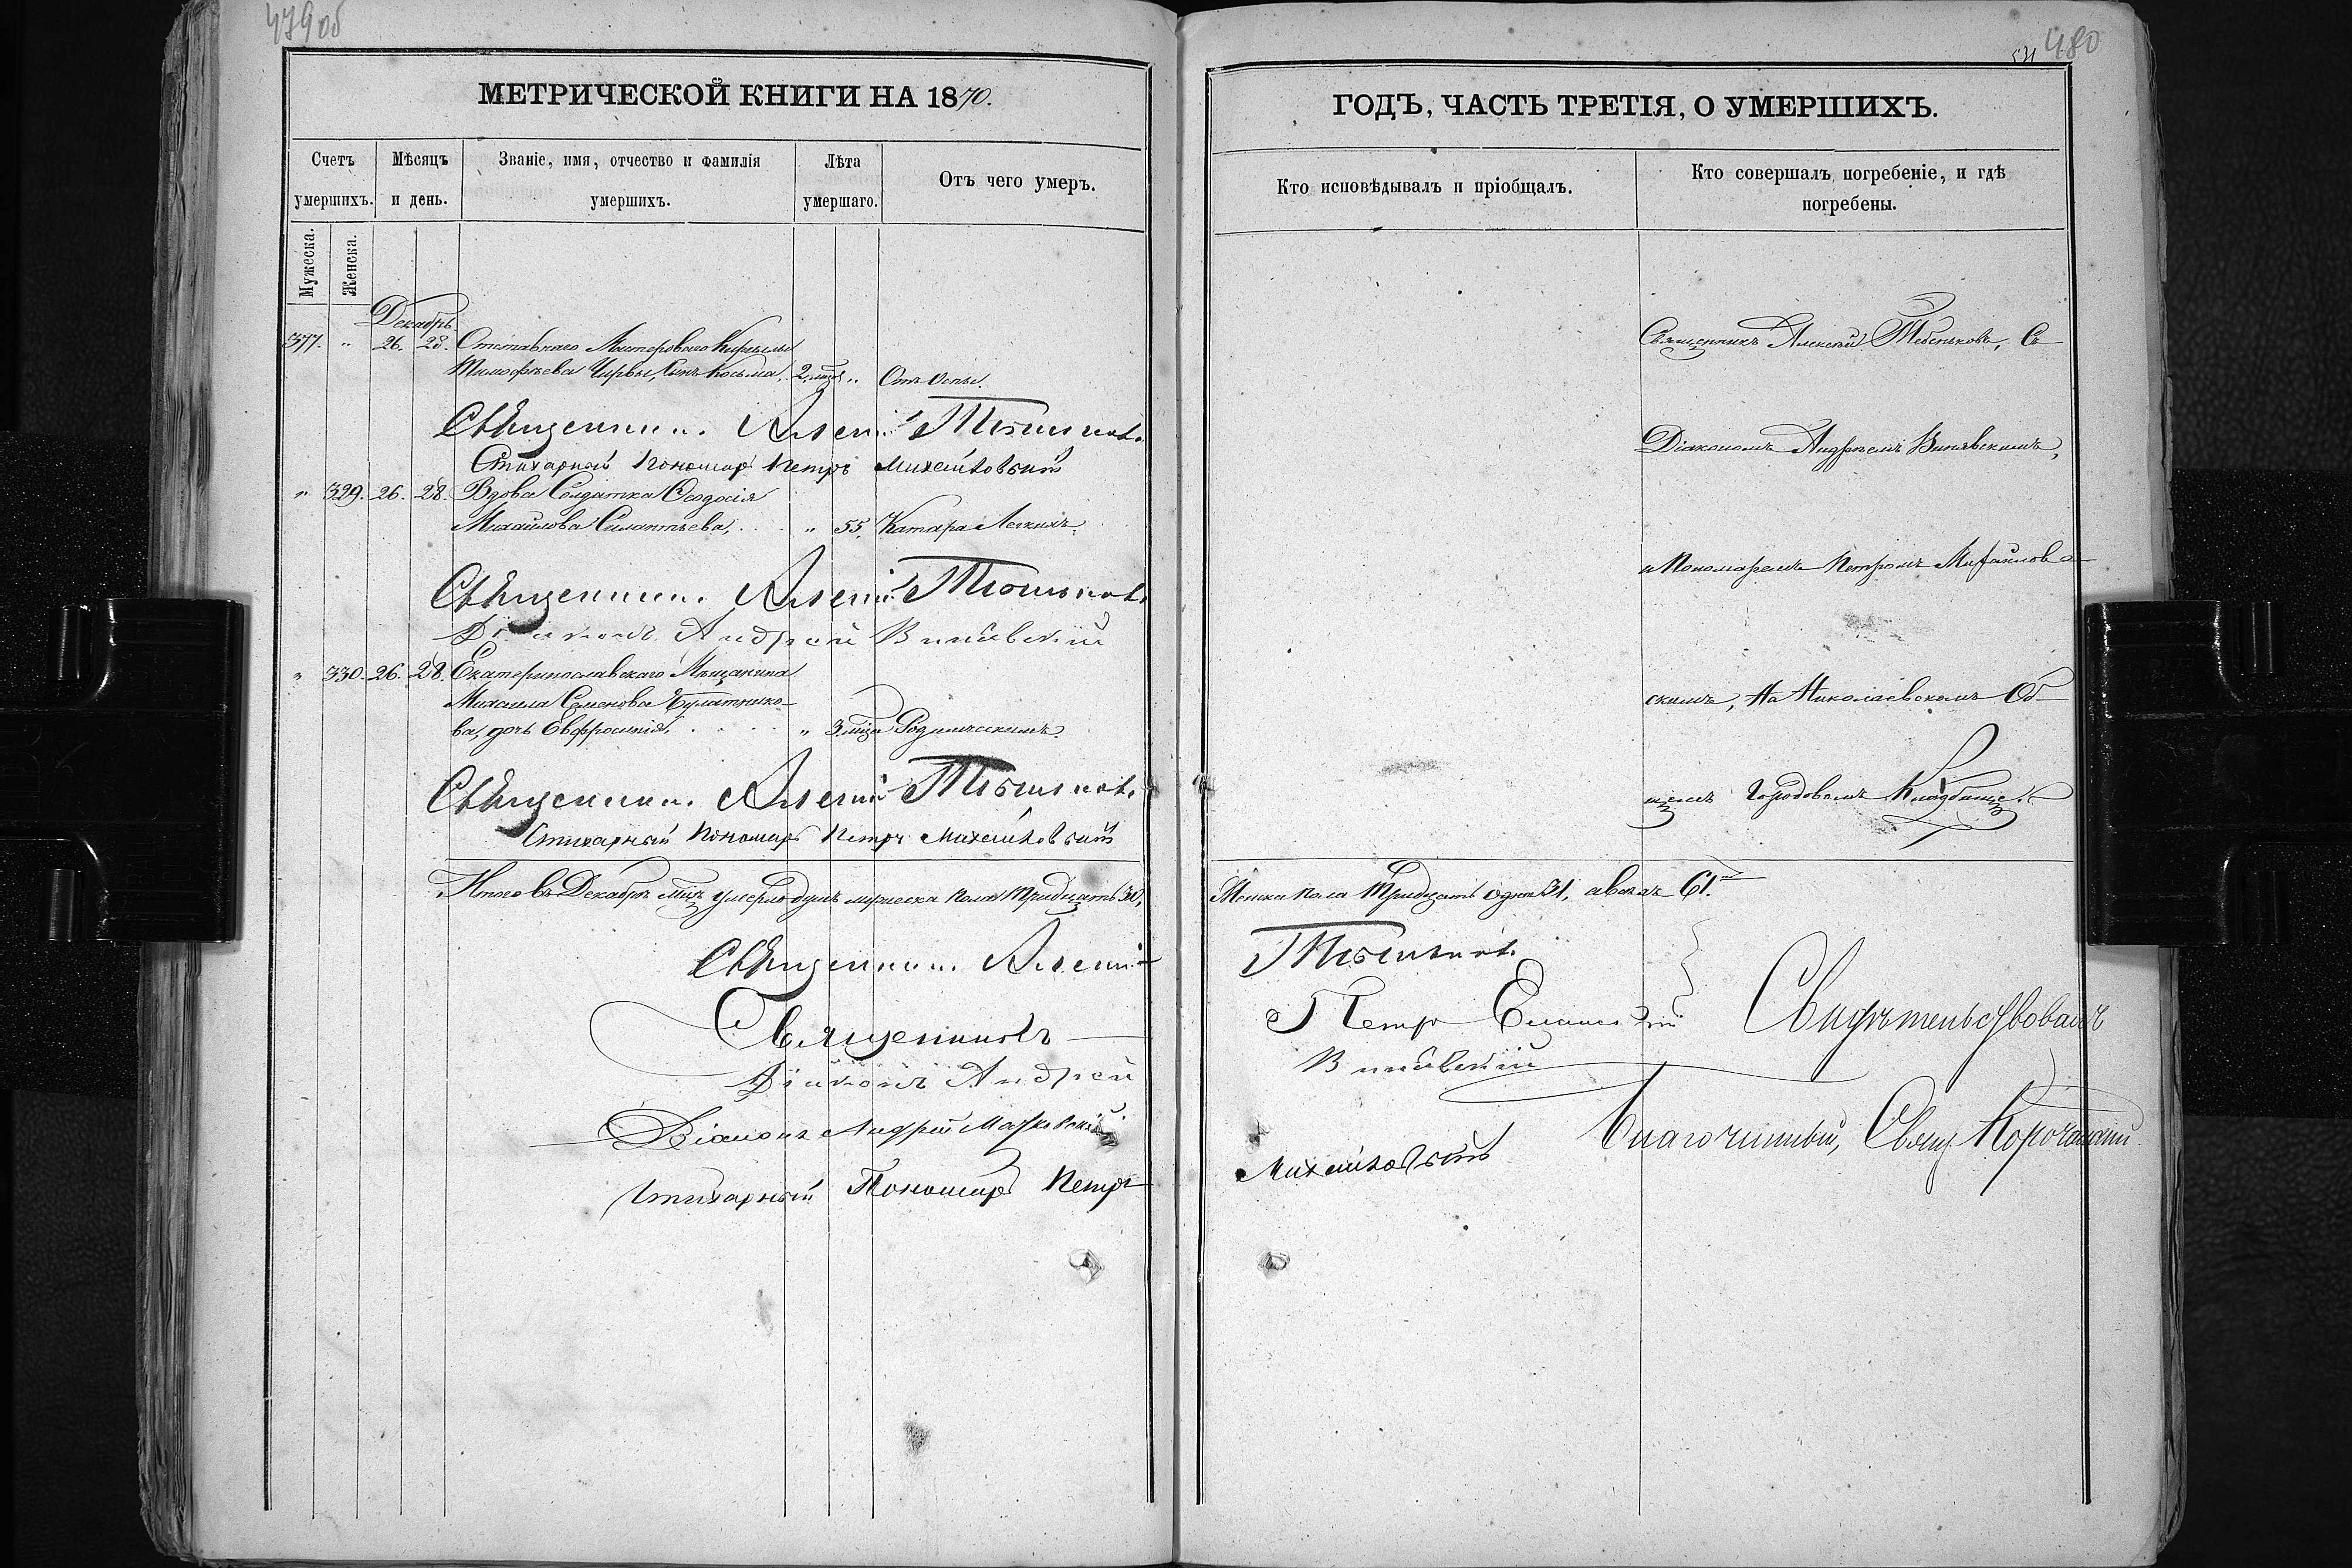 479об
МЕТРИЧЕСКОЙ КНИГИ НА 1870.
Счетъ умершихъ.
Мѣсяцъ и день.
Званіе, имя, отчество и фамилія умершихъ.
Лѣта умершаго.
Отъ чего умеръ.
Мужеска.
Женска.
Декабрь
377. " 26. 28. Отставнаго Мастероваго Кирыллы
Тимофѣева Чирвы, Сынъ Косьма, 2 " Отъ Оспы.
Священникъ Алексій
Стихарный Пономарь Петръ Михайловскій
" 329. 26. 28. Вдова Солдатка Ѳеодосія
Михайлова Силантьева, " 55. Катара Легкихъ.
Священникъ Алексій
Діаконъ Андрей
" 330. 26. 28. Екатеринославскаго Мѣщанина
Михаила Семенова Булатнико-
ва, дочь Евфросинія, " 3 мѣся Родимческимъ.
Священникъ Алексій
Стихарный Пономарь Петръ Михайловскій
Итого въ Декабрѣ мцѣ умерло душъ мужеска пола Тридцать 30,
Священникъ Алексій
Священникъ
Діаконъ Андрей
Діаконъ Андрей
Стихарный Пономарь Петръ
480
ГОДЪ, ЧАСТЬ ТРЕТІЯ, О УМЕРШИХЪ.
Кто исповѣдывалъ и пріобщалъ.
Кто совершалъ погребеніе, и гдѣ погребены.
Священникъ Алексій Тебеньковъ, Съ
Діакономъ Андреемъ
и Пономаремъ Петромъ Михайлов-
скимъ, На Николаевскомъ Об-
щемъ Городовомъ Кладбище.
Женска пола Тридцать одна 31, а всѣхъ 61.
Петръ
Михайловскій
Свидѣтельствовалъ
Благочинный, Свящ